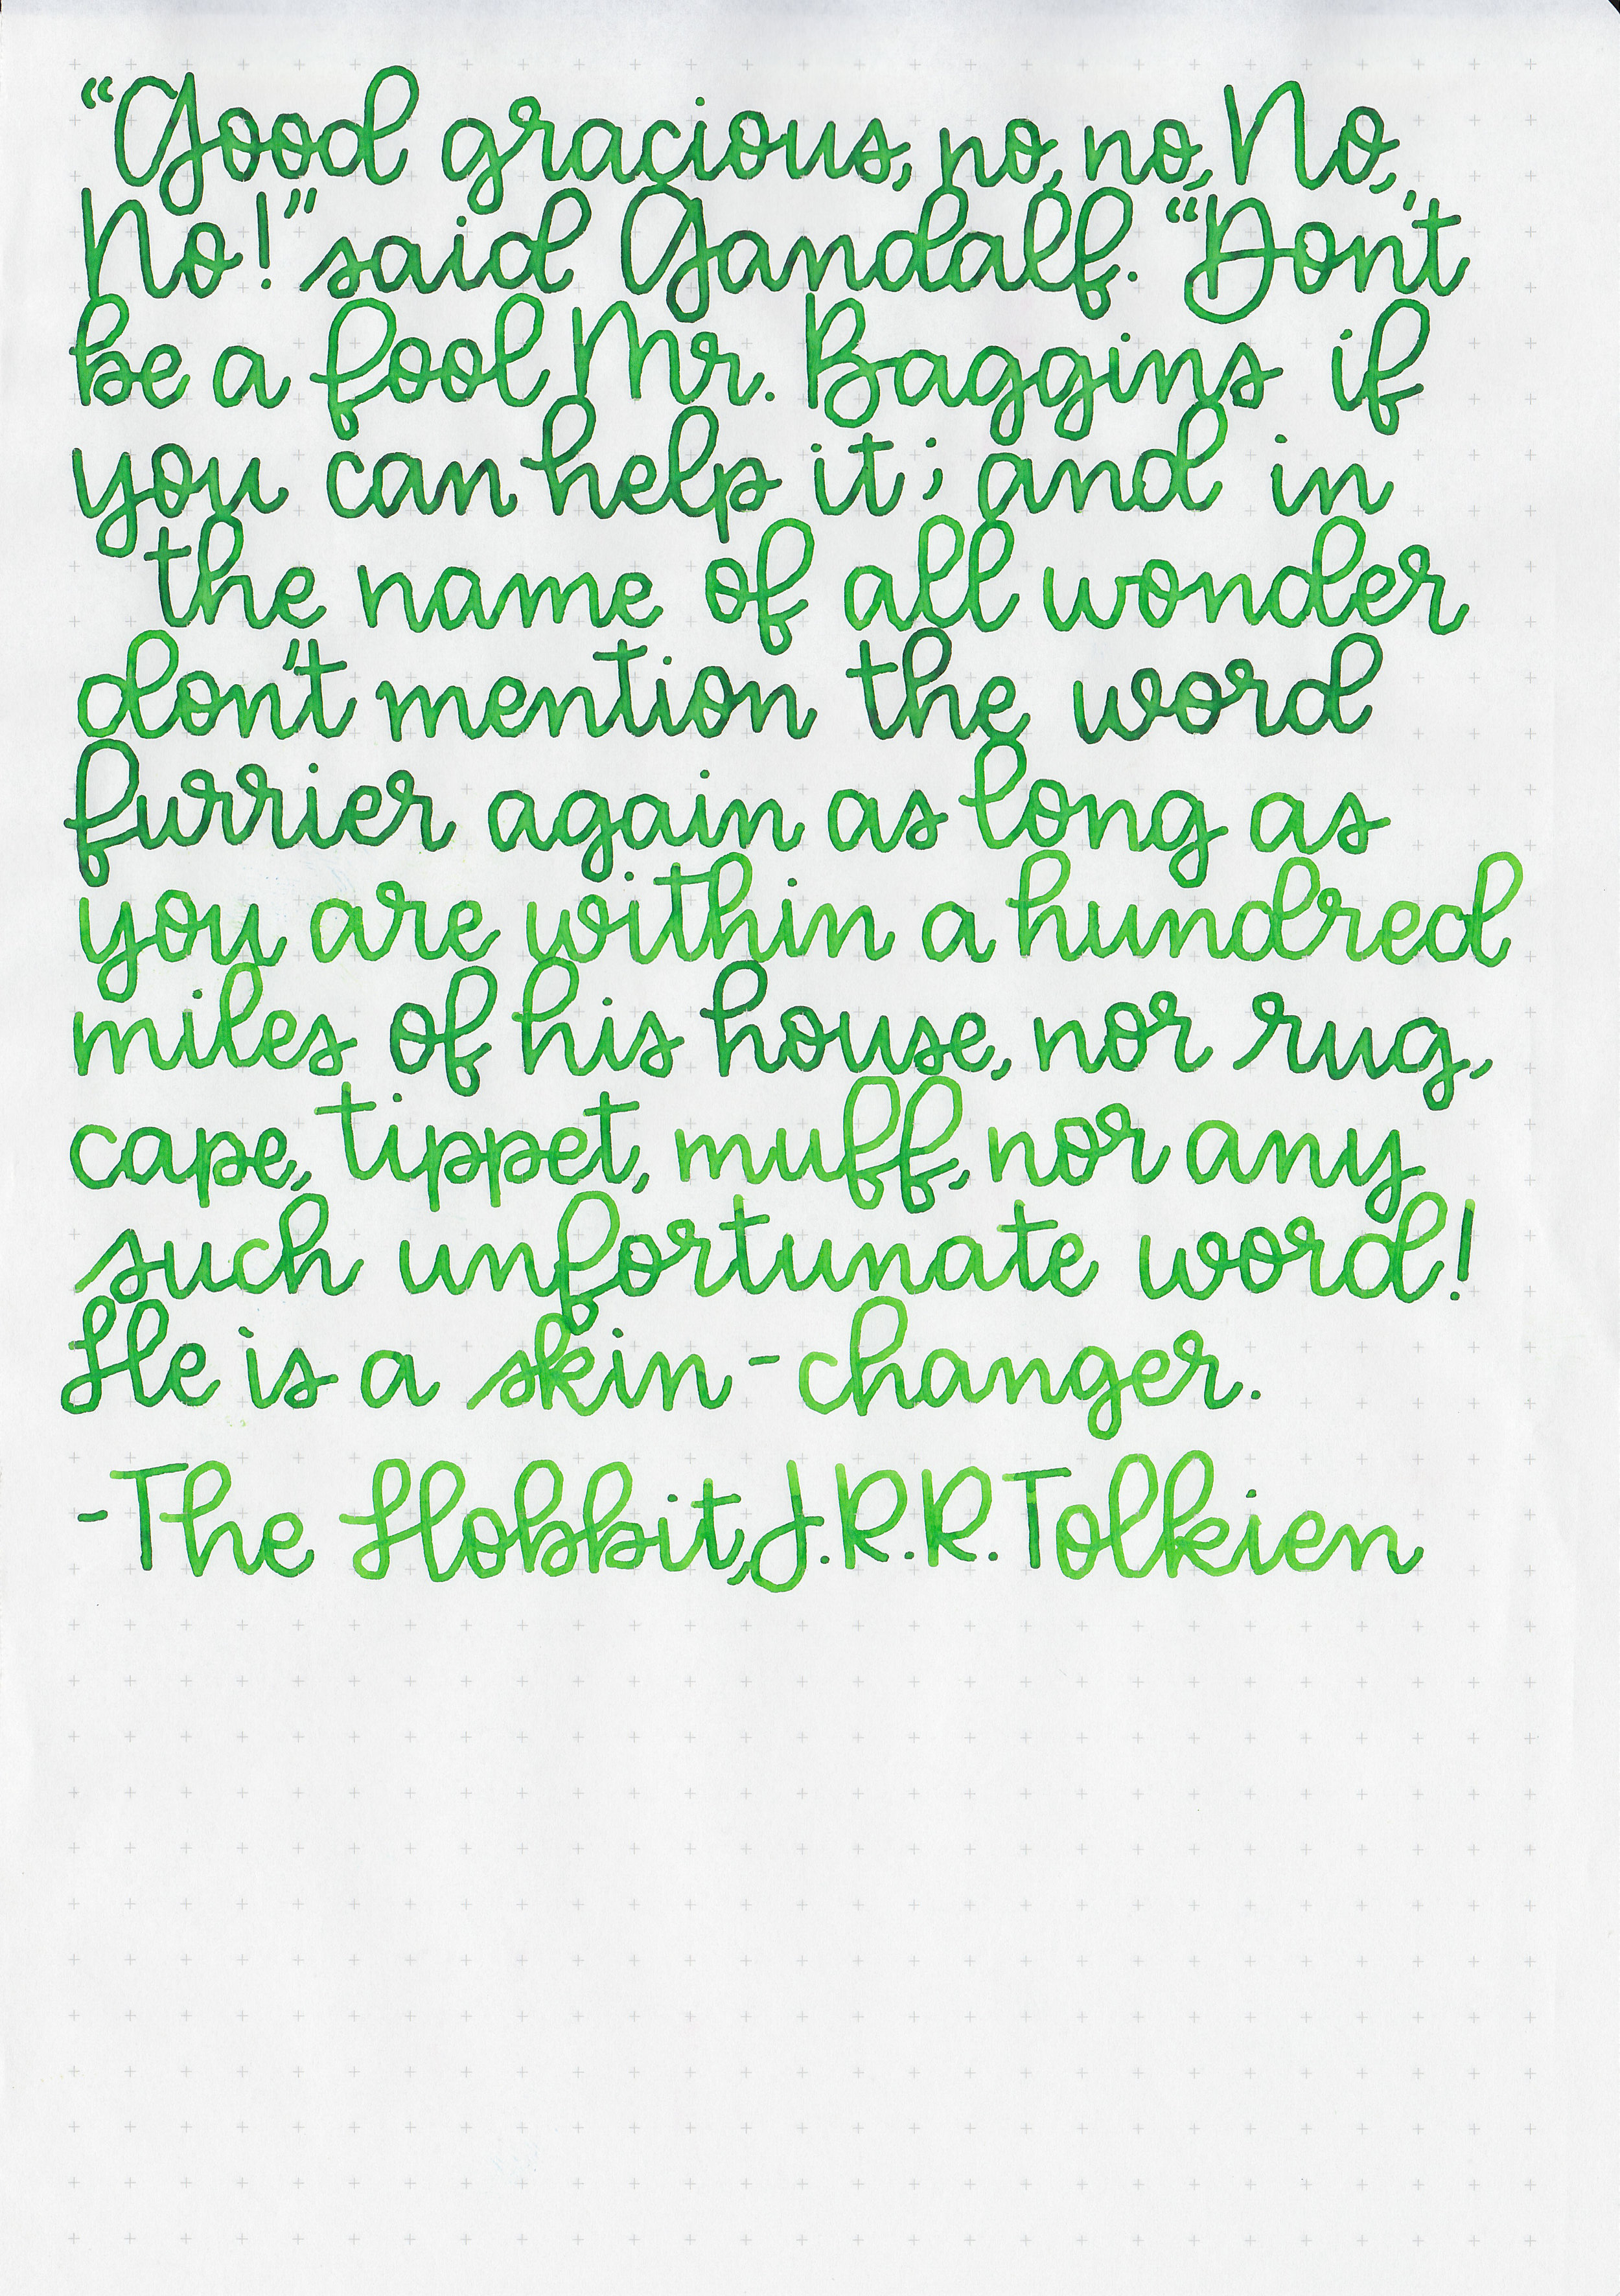 “Good gracious, no, no, No,
No!” said Gandalf. “Don't
be a fool Mr. Baggins if
you can help it; and in
the name of all wonder
don't mention the word
furrier again as long as
you are within a hundred
miles of his house, nor rug,
cape, tippet, muff, nor any
such unfortunate word!
He is a skin-changer.
-The Hobbit, J.R.R. Tolkien